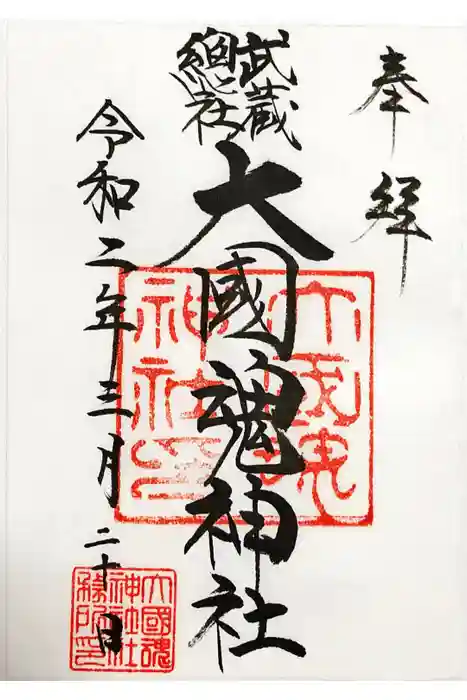 奉拝
武蔵
總社
大國魂神社
令和二年三月二十日
大国魂
神社印
大國魂
神社社
務所印